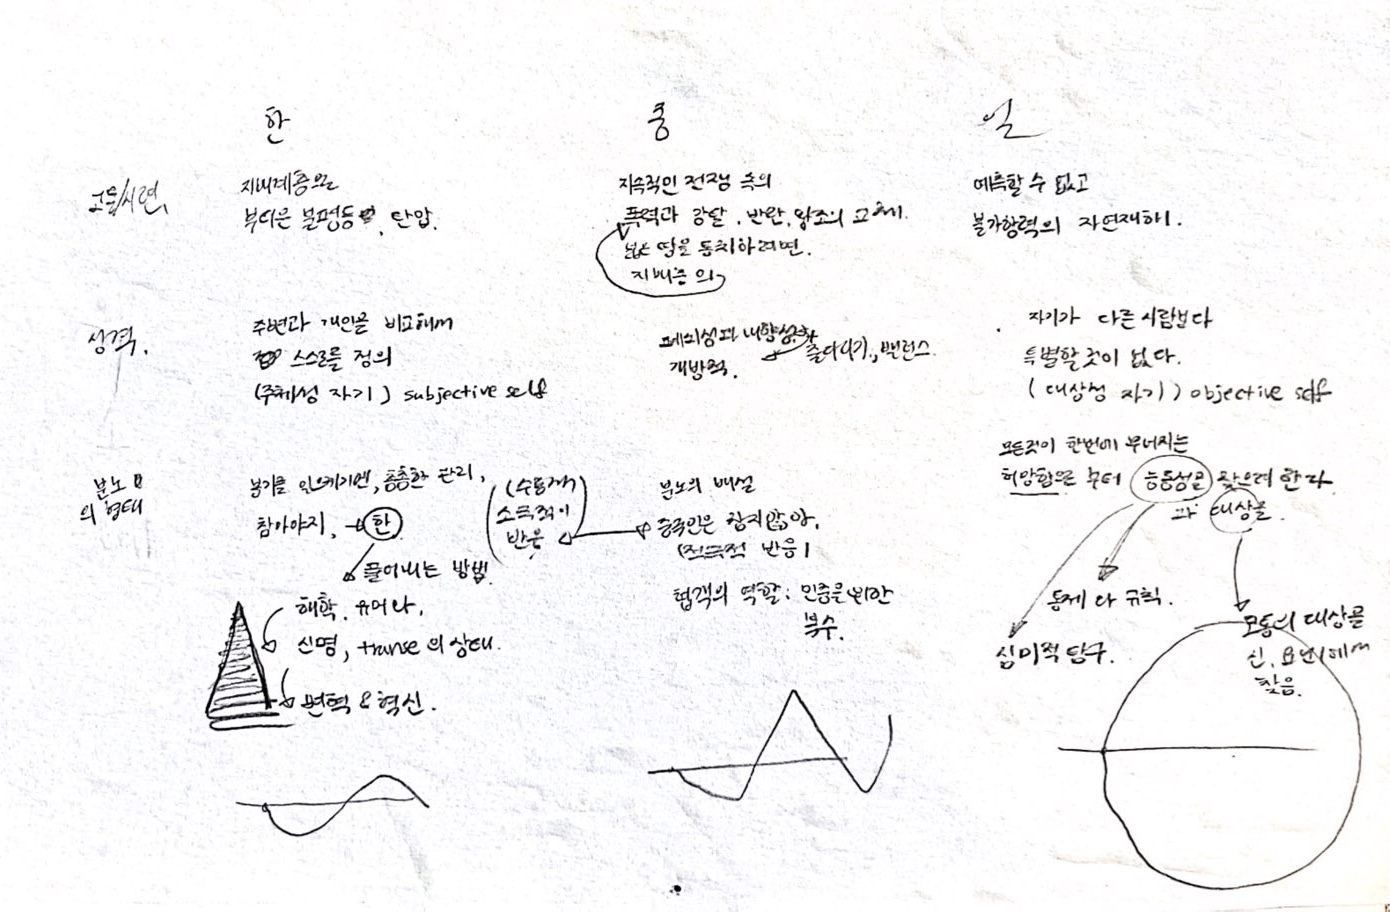 한
중
일
고통/시련,
지배계층으로
부터은 불평등, 탄압.
지속적인 전쟁 속의
폭력과 강탈, 반란, 왕조의 교체.
넓은 땅을 통치하려면.
지배층의
예측할 수 없고
불가항력의 자연재해.
성격.
주변과 개인을 비교해서
스스로를 정의
(주체성 자기) subjective self
내향성과
개방적.
줄다리기, 밸런스.
자기가 다른사람보다
특별할 것이 없다.
(대상성 자기) objective self
분노
의 형태
봉기를 일으키기엔, 촘촘한 관리,
참아야지, 한
풀어내는 방법.
해학, 유머나,
신명, transe의 상태.
변혁 & 혁신.
(수동적)
소극적인
반응
분노의 배설
중국인은 참지않아,
(적극적 반응)
협객의 역할: 민중을 위한
복수.
모든것이 한번에 무너지는
허망함으로 부터 능동성을 찾으려 한다
과 대상을.
통제나 규칙.
심미적 탐구.
모듬의 대상을
신, 요년에서
찾음.